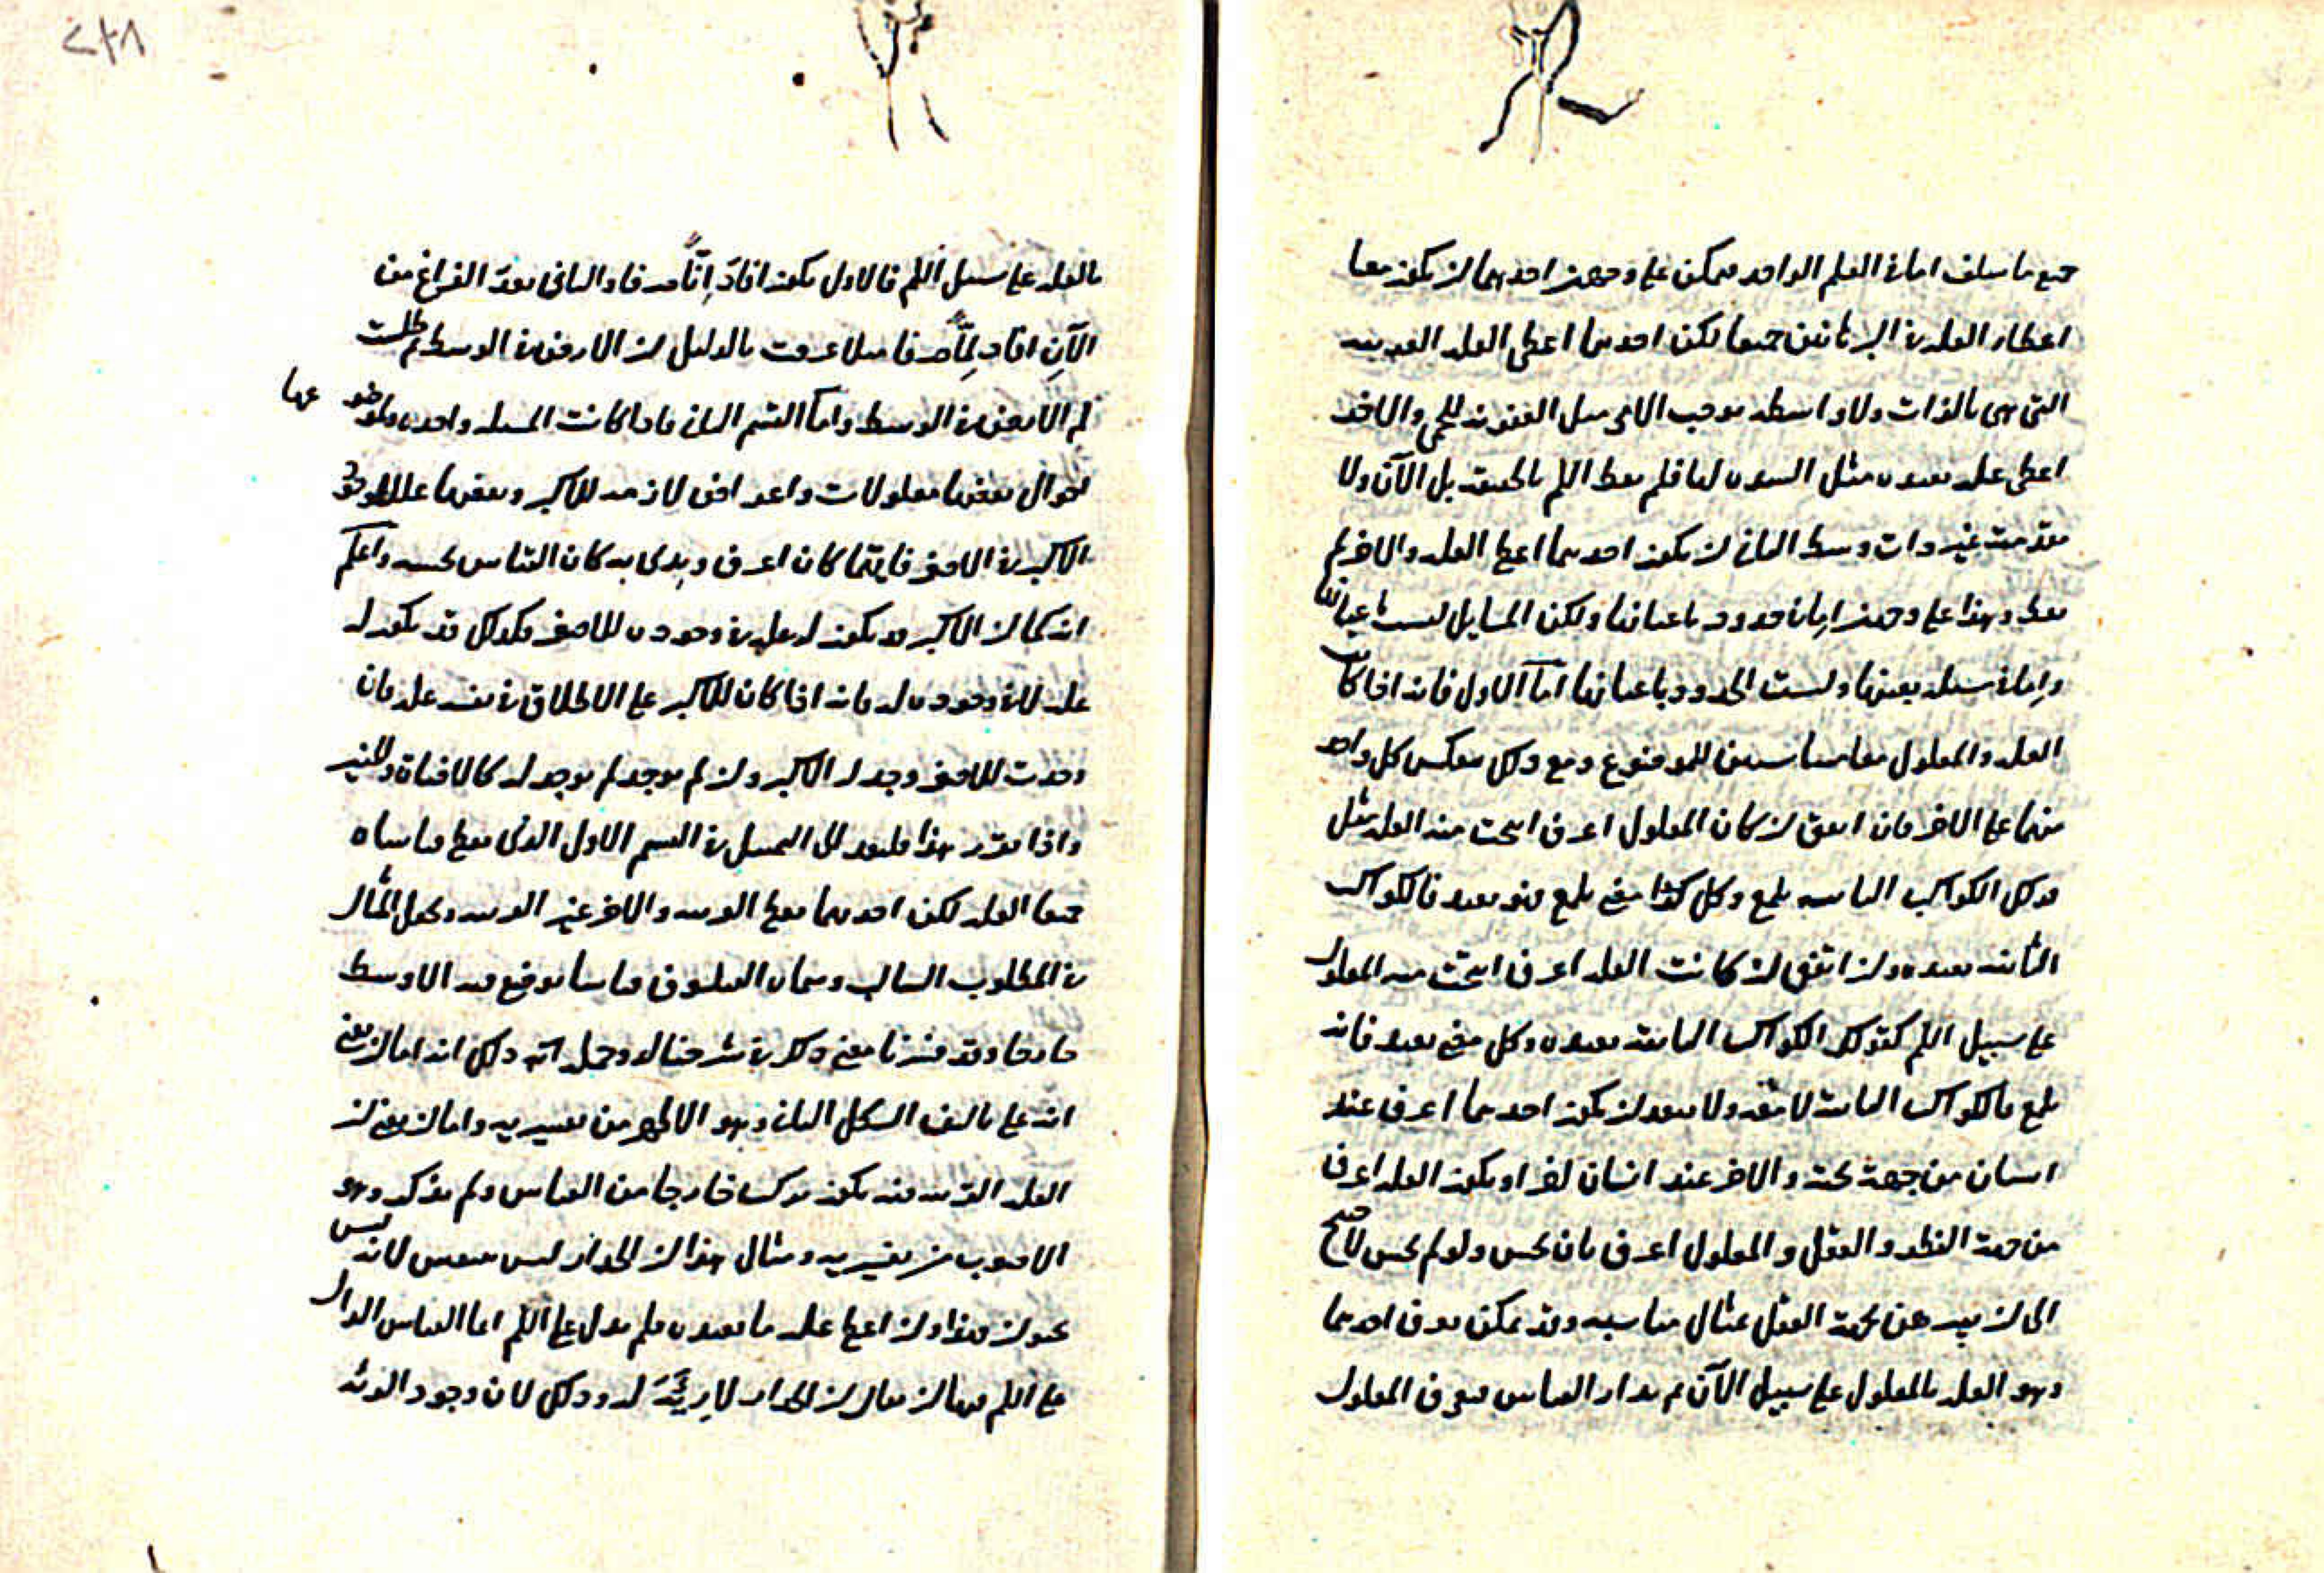 جميع ما سلف اما في العلم الواحد فيمكن على وجهين احدهما ان يكون معا
اعطاء العلة في البرهانين جميعا لكن احدهما اعطى العلة القريبة
التي هي بالذات وبلا واسطة يوجب الامر مثل العفونة للحمى والاخر
اعطى علة بعيدة مثل السدة لها فلم يعط اللم بالحقيقة بل الآن ولا
مقدمته غير ذات وسط الثاني ان يكون احدهما اعطى العلة والاخر لم
يعط وهذا على وجهين اما في حدود باعيانها ولكن المسايل ليست باعيانها
واما في مسئلة بعينها وليست الحدود باعيانها اما الاول فانه اذا كانت
العلة والمعلول معا مناسبين للموضوع ومع ذلك ينعكس كل واحد
منهما على الاخر فان اتفق ان كان المعلول اعرف انتجت منه العلة مثل
قولك الكواكب الثابتة يلمع وكل كوكب مضى يلمع فهو بعيد فالكواكب
الثابتة بعيدة وان اتفق ان كانت العلة اعرف انتجت منه المعلول
على سبيل اللم كقولك الكواكب الثابتة بعيدة وكل مضى بعيد فانه
يلمع فالكواكب الثابتة لامعة ولا يبعد ان يكون احدهما اعرف عند
انسان من جهة بحثه والاخر عند انسان اخر او يكون العلة اعرف
من جهة النظر والعقل والمعلول اعرف بان يحس ولو لم يحس لاحتيج
الى ان يبرهن بجهة العقل مثال مناسبه وقد يمكن يعرف احدهما
وهو العلة بالمعلول على سبيل الآن ثم يدار القياس فيعرف المعلول
٢٤٨
بالعلة على سبيل اللم فالاول يكون افاد إنّا صرفا والثاني بعد الفراغ من
الآن افاد لِمّا صرفا مثلا عرفت بالدليل ان الارض في الوسط ثم طلبت
لم الارض في الوسط واما القسم الثاني فاذا كانت المسئلة واحدة ولموضوعها
احوال بعضها معلولات واعراض لازمة للاكبر وبعضها علل لوجود
الاكبر في الاصغر فايتما كان اعرف وبدى به كان القياس بحسبه واعلم
انه كما ان الاكبر قد يكون له علة في وجوده للاصغر فكذلك قد يكون له
علة لا في وجوده له فانه اذا كان للاكبر على الاطلاق في نفسه علة فان
وجدت للاصغر وجد له الاكبر وان لم يوجد لم يوجد له كالاضاة والمنير
واذا تقرر هذا فليعد الى التمثيل في القسم الاول الذي يعطى قياساه
جميعا العلة لكن احدهما يعطى القريبة والاخر غير القريبة وتجعل المثال
في المطلوب السالب وسمان الفيلسوف قياسا يوضع فيه الاوسط
خارجا وقد فسرنا معنى ذلك في شرحنا له وجملته ذلك انه اما ان يعنى
انه على تاليف الشكل الثاني وهو الاظهر من تفسيريه واما ان يعنى ان
العلة القريبة منه يكون تركت خارجا من القياس ولم يذكر وهو
الاصوب من تفسيريه ومثال هذا ان الجدار ليس متنفس لانه ليس
بحيوان فهذا وان اعطى علة ما بعيدة فلم يدل على اللم اما القياس الدال
على اللم فهو ان يقال ان الجدار لا رِيَّةَ له وذلك لان وجود الرئة